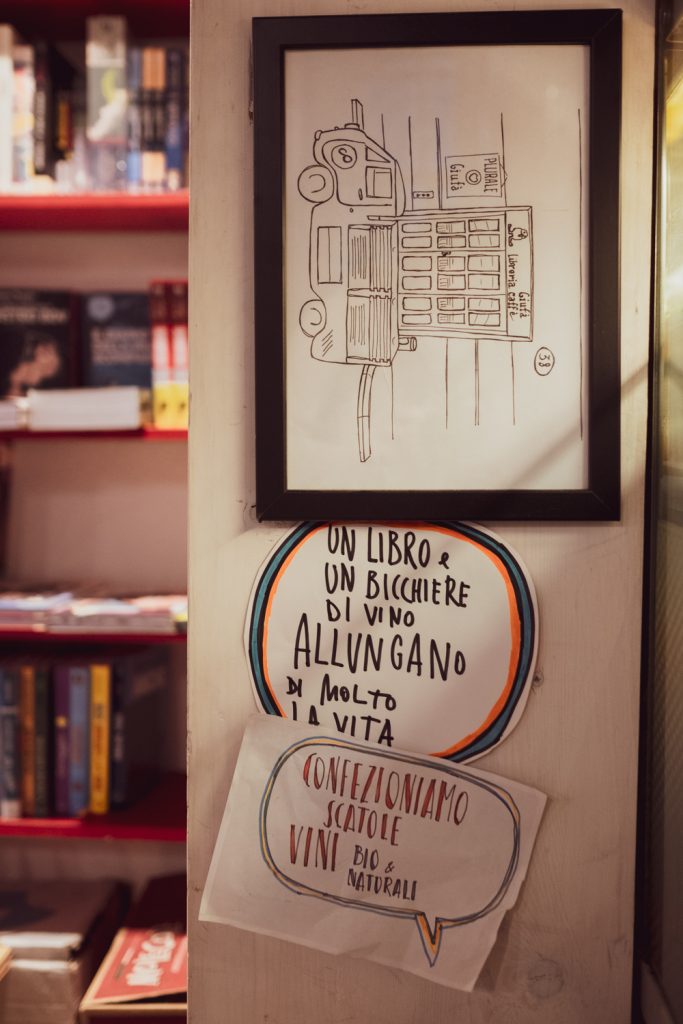 PLURALE
Giufà
Giufà
Libreria caffè
38
UN LIBRO e
UN BICCHIERE
DI VINO
ALLUNGANO
DI MOLTO
LA VITA
CONFEZIONIAMO
SCATOLE
VINI BIO &
NATURALI